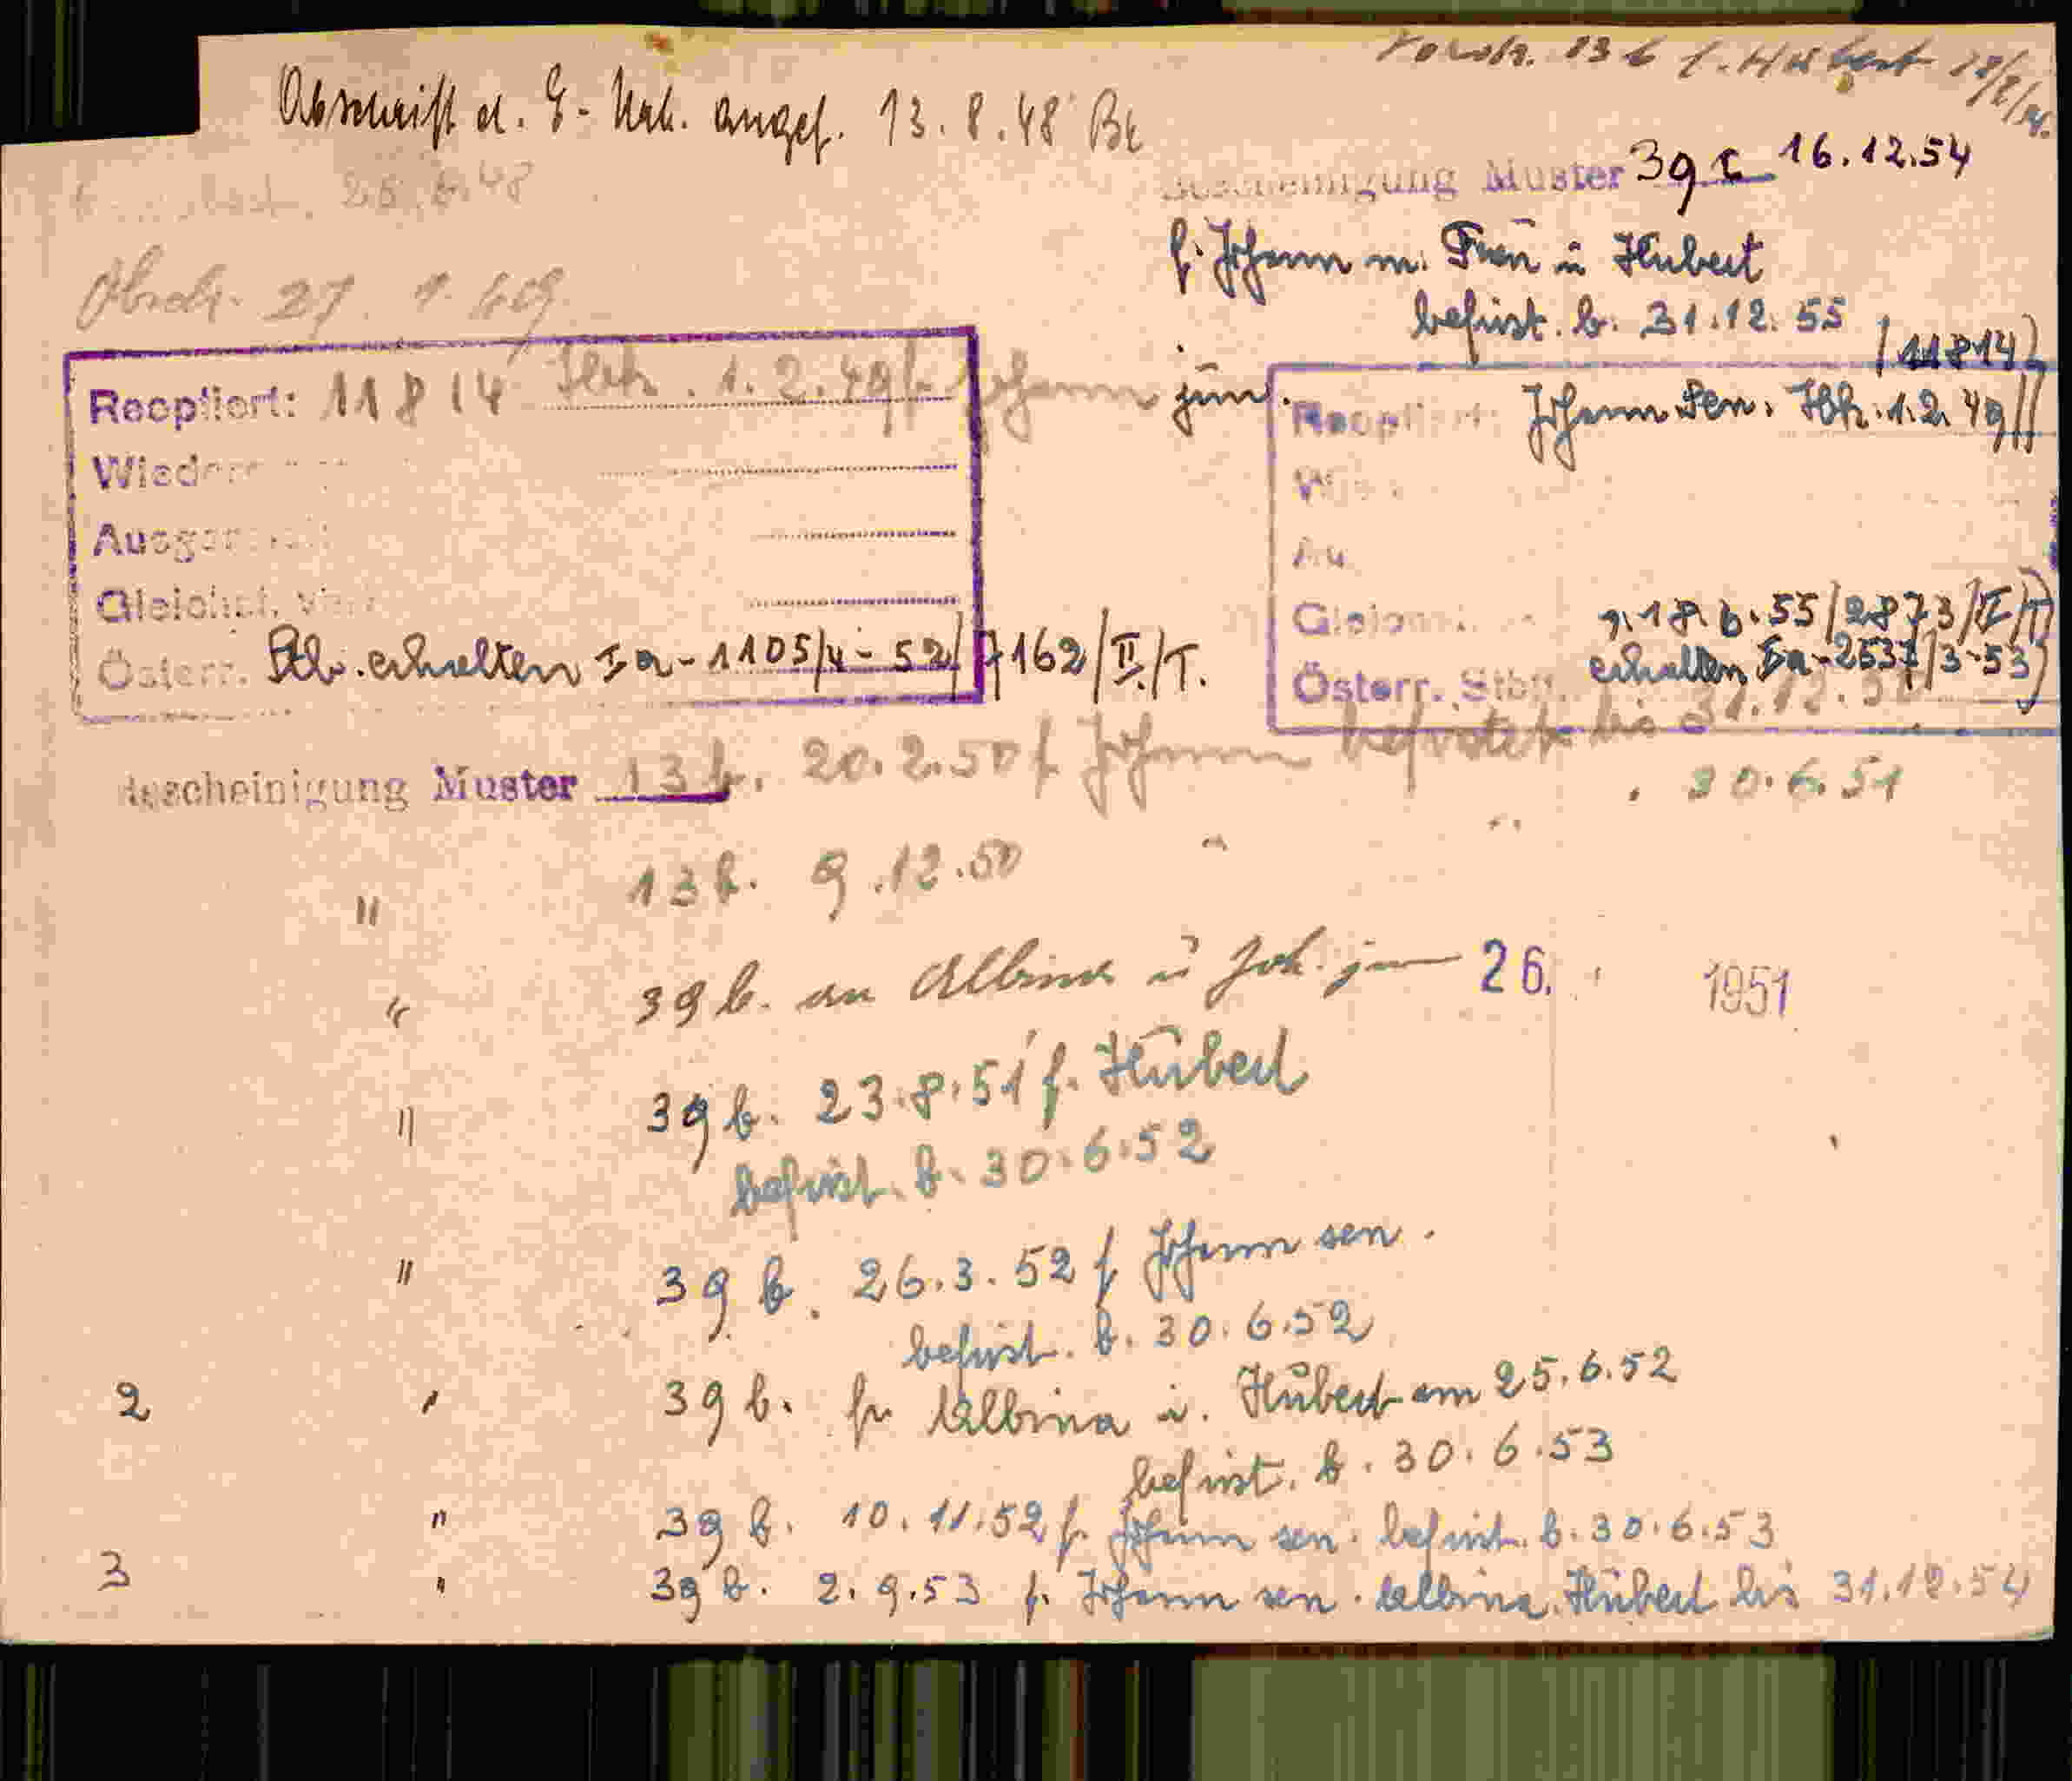 13 b f. Hubert
Abschrift d. E-Urk. angef. 13.8.48
25.6.48
Bescheinigung Muster 39 c 16.12.54
f. Johann m. Frau u Hubert
befrist. b. 31.12.55
Abschr. 27.1.49
(11814)
Reoptiert: 11814 1.2.49 f. Johann jun.
Reoptiert: Johann sen. 1.2.49
Gleichst.
Österr. Stb. erhalten Ia-1105/4-52/7162/II/T.
v. 18.6.55/2873/II/T
Österr. Stbg. erhalten Ia-2537/3-53
Bescheinigung Muster 13 b. 20.2.50 f Johann befristet bis 31.12.50
" 13 b. 9.12.50 " " 30.6.51
" 39 b. an Albina u Joh. jun 26. 1951
" 39 b. 23.8.51 f. Hubert
befrist. b. 30.6.52
" 39 b. 26.3.52 f Johann sen.
befrist. b. 30.6.52
2 " 39 b. für Albina u. Hubert am 25.6.52
befrist. b. 30.6.53
" 39 b. 10.11.52 f. Johann sen. befrist. b. 30.6.53
3 " 39 b. 2.9.53 f. Johann sen. Albina. Hubert bis 31.12.54